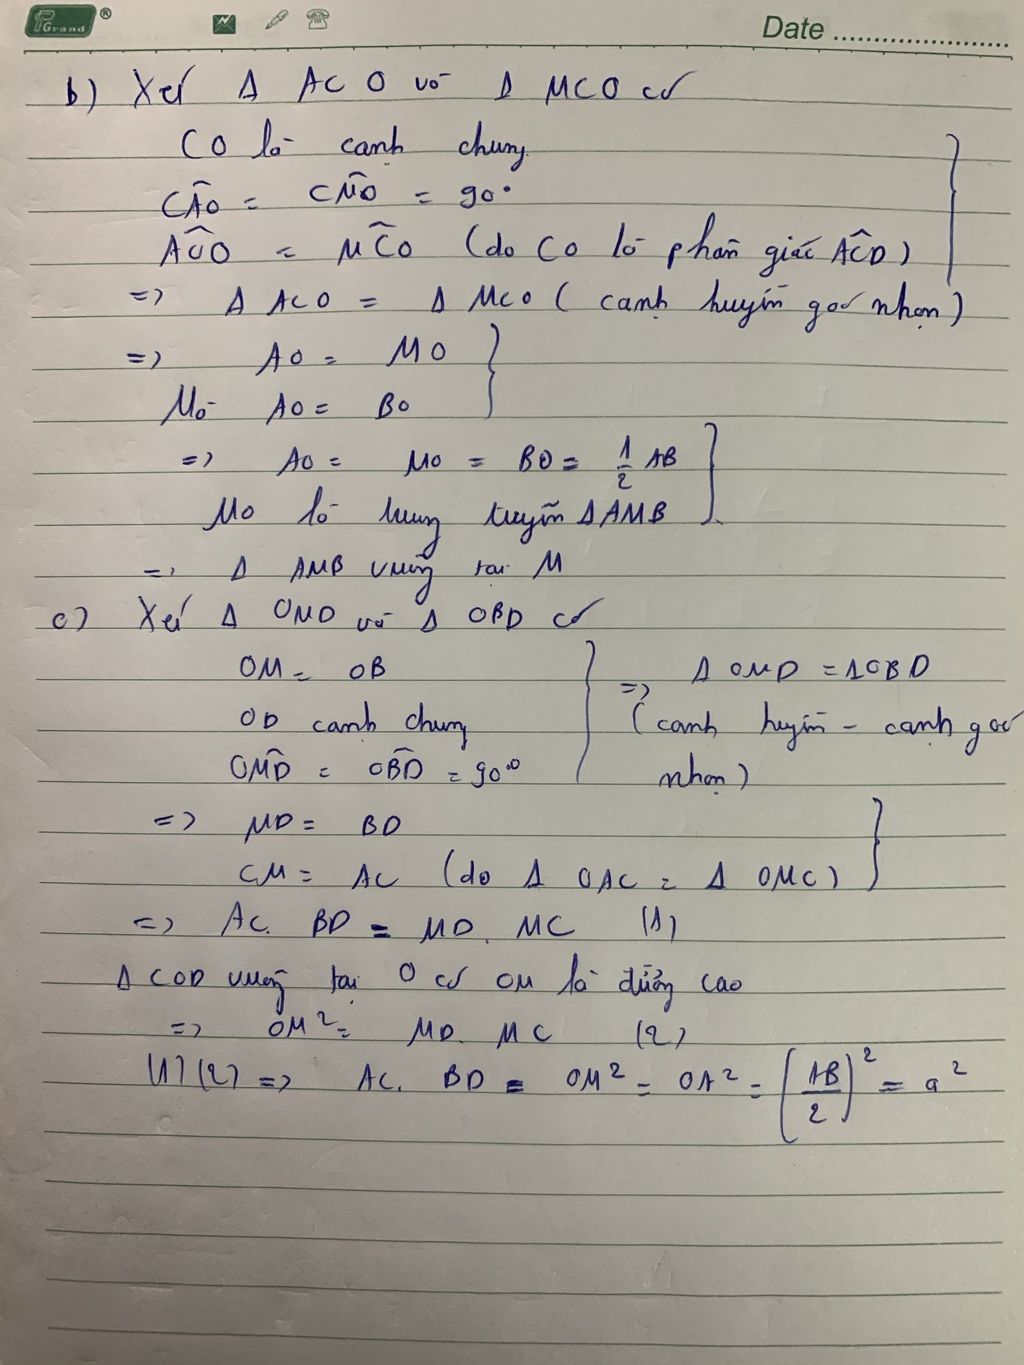 Grand ®
Date
b) Xét Δ ACO và Δ MCO có
CO là cạnh chung
CÂO = CM̂O = 90°
AĈO = MĈO (do CO là phân giác AĈD)
=> Δ ACO = Δ MCO ( cạnh huyền góc nhọn )
=> AO = MO
Mà AO = BO
=> AO = MO = BO = 1/2 AB
MO là trung tuyến Δ AMB
=> Δ AMB vuông tại M
c) Xét Δ OMD và Δ OBD có
OM = OB
OD cạnh chung
OM̂D = OB̂D = 90°
=> Δ OMD = Δ OBD
( cạnh huyền - cạnh góc
nhọn )
=> MD = BD
CM = AC (do Δ OAC = Δ OMC)
=> AC. BD = MD. MC (1)
Δ COD vuông tại O có OM là đường cao
=> OM² = MD. MC (2)
(1) (2) => AC. BD = OM² = OA² = (AB/2)² = a²